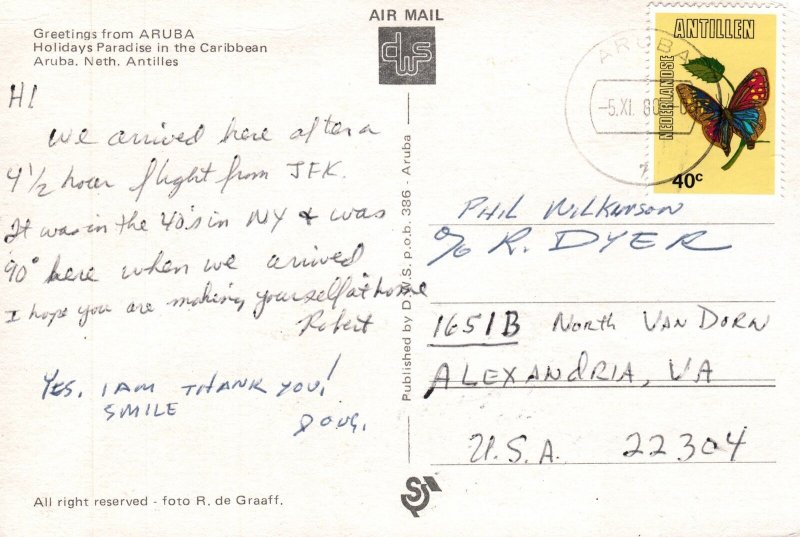 AIR MAIL
Greetings from ARUBA
Holidays Paradise in the Caribbean
Aruba. Neth. Antilles
dws
ARUBA
-5.XI. 80
ANTILLEN
NEDERLANDSE
40c
HI
We arrived here after a
4 1/2 hour flight from JFK.
It was in the 40's in NY & was
90° here when we arrived
I hope you are making yourself at home
Robert
YES, I AM THANK YOU!
SMILE
DOUG.
Published by D.W.S. p.o.b. 386 - Aruba
PHIL WILKINSON
c/o R. DYER
1651B NORTH VAN DORN
ALEXANDRIA, VA
U.S.A. 22304
All right reserved - foto R. de Graaff.